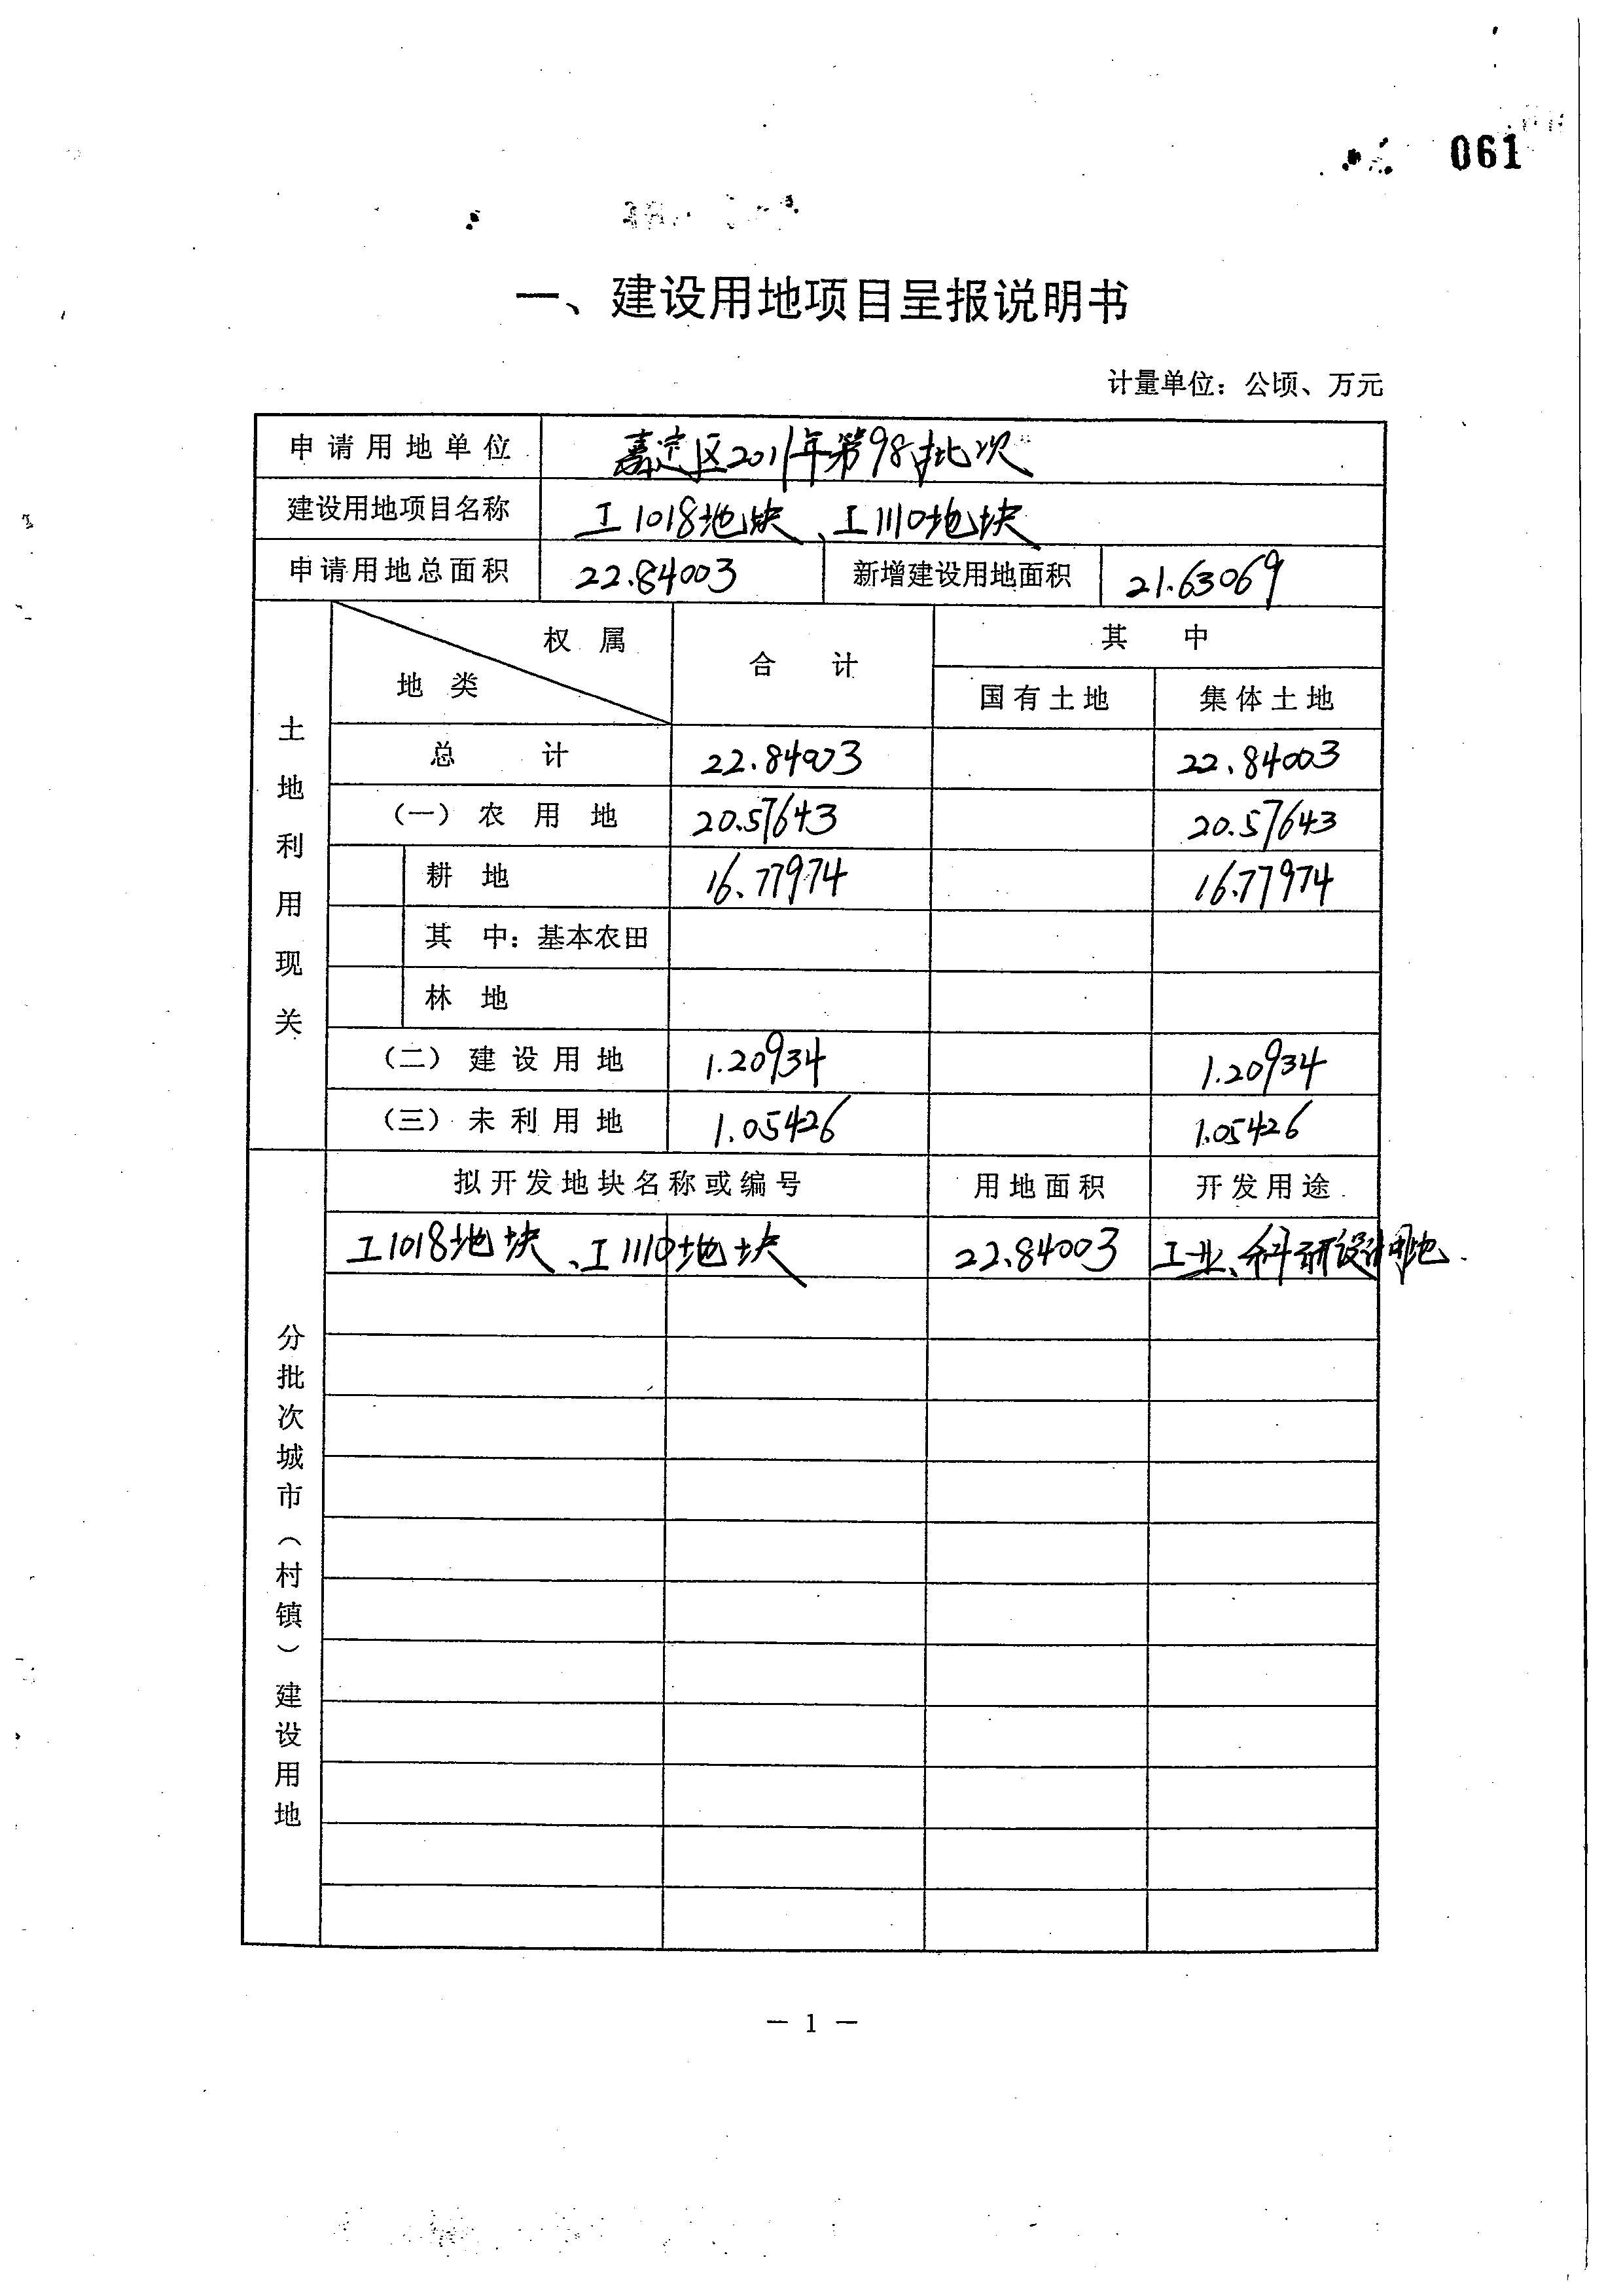 061
一、建设用地项目呈报说明书
计量单位：公顷、万元
申请用地单位 嘉定区2011年第98批次
建设用地项目名称 工1018地块、工1110地块
申请用地总面积 22.84003 新增建设用地面积 21.63069
土地利用现关
权属 地类 合计 其中
国有土地 集体土地
总计 22.84003 22.84003
（一）农用地 20.57643 20.57643
耕地 16.77974 16.77974
其中：基本农田
林地
（二）建设用地 1.20934 1.20934
（三）未利用地 1.05426 1.05426
分批次城市（村镇）建设用地
拟开发地块名称或编号 用地面积 开发用途
工1018地块、工1110地块 22.84003 工业、科研设计用地
— 1 —